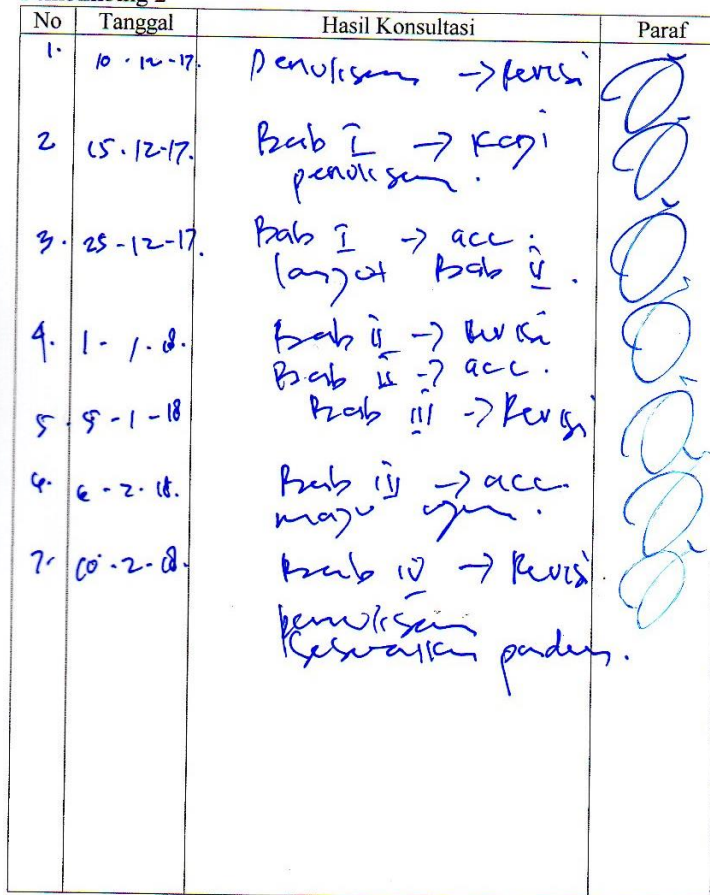 No Tanggal Hasil Konsultasi Paraf
1. 10-12-17. Penulisan -> Revisi
2 15.12-17. Bab I ->
penulisan.
3. 25-12-17. Bab I -> acc.
lanjut Bab II.
4. 1-1-18. Bab II -> Revisi
Bab II -> acc.
5. 5-1-18 Bab III -> Revisi
6. 6-2-18. Bab III -> acc.
maju ujian.
7. 10-2-18. Bab IV -> Revisi.
penulisan
Sesuaikan panduan.